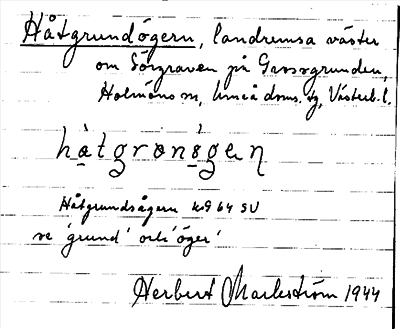 Håtgrundögern, landremsa väster
om Sörgraven på Grossgrunden,
Holmöns sn, Umeå doms. tg, Västerb. l.
hàtgrønǿgen
Håtgrundsågern k09 64 SV
se 'grund' och 'öger'
Herbert Markström 1944